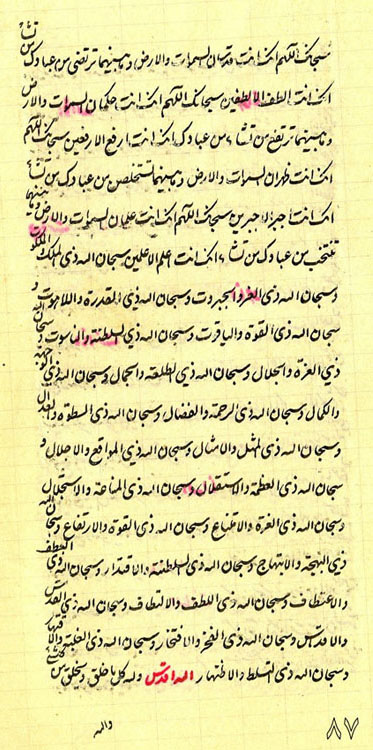 سبحانك اللهم انك انت قدسان السموات والارض وما بينهما ترتضي من عبادك من تشاء
انك انت الطف الالطفين سبحانك اللهم انك انت حكمان السموات والارض
وما بينهما ترتفع من تشاء من عبادك انك انت ارفع الارفعين سبحانك اللهم
انك انت ظهران السموات والارض وما بينهما تستخلص من عبادك من تشاء
انك انت اجبر الاجبرين سبحانك اللهم انك انت علمان السموات والارض وما بينهما
تنتخب من عبادك من تشاء انك انت اعلم الاعلمين سبحان الله ذي الملك والملكوت
وسبحان الله ذي العز والجبروت وسبحان الله ذي القدرة واللاهوت و
سبحان الله ذي القوة والياقوت وسبحان الله ذي السلطنة والناسوت وسبحان الله
ذي العزة والجلال وسبحان الله ذي الطلعة والجمال وسبحان الله ذي الوجهة
والكمال وسبحان الله ذي الرحمة والفضال وسبحان الله ذي السطوة والعدال
وسبحان الله ذي المثل والامثال وسبحان الله ذي المواقع والاجلال و
سبحان الله ذي العظمة والاستقلال وسبحان الله ذي المناعة والاستجلال
وسبحان الله ذي العزة والامتناع وسبحان الله ذي القوة والارتفاع وسبحان الله
ذي البهجة والابتهاج وسبحان الله ذي السلطنة والاقتدار وسبحان الله ذي العطف
والاعتطاف وسبحان الله ذي اللطف والالتطاف وسبحان الله ذي القدس
والاقتداس وسبحان الله ذي الفخر والافتخار وسبحان الله ذي الغلبة والاقتهار
وسبحان الله ذي التسلط والاظتهار الله اقدس وله كل ما خلق ويخلق من
والله
٨٧